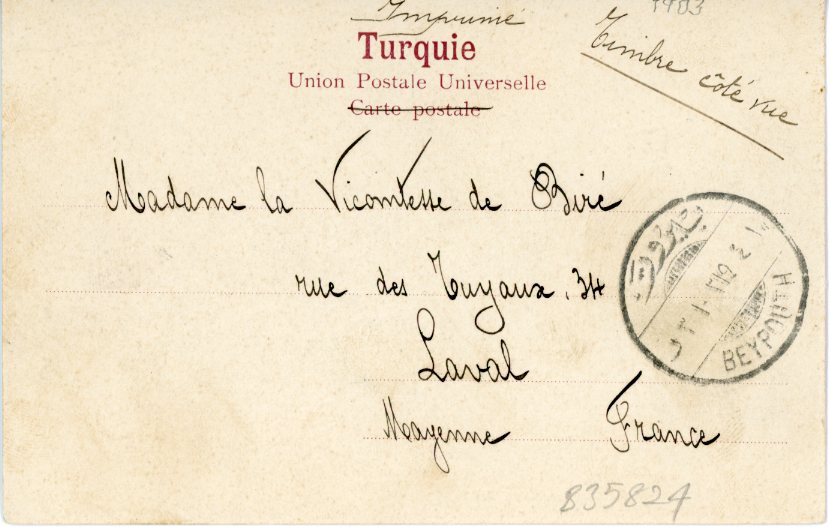 Imprimé
1903
Turquie
Timbre côté vue
Union Postale Universelle
Carte postale
Madame la Vicomtesse de Biré
rue des Tuyaux, 34
Laval
Mayenne France
بيروت
BEYROUTH
835824